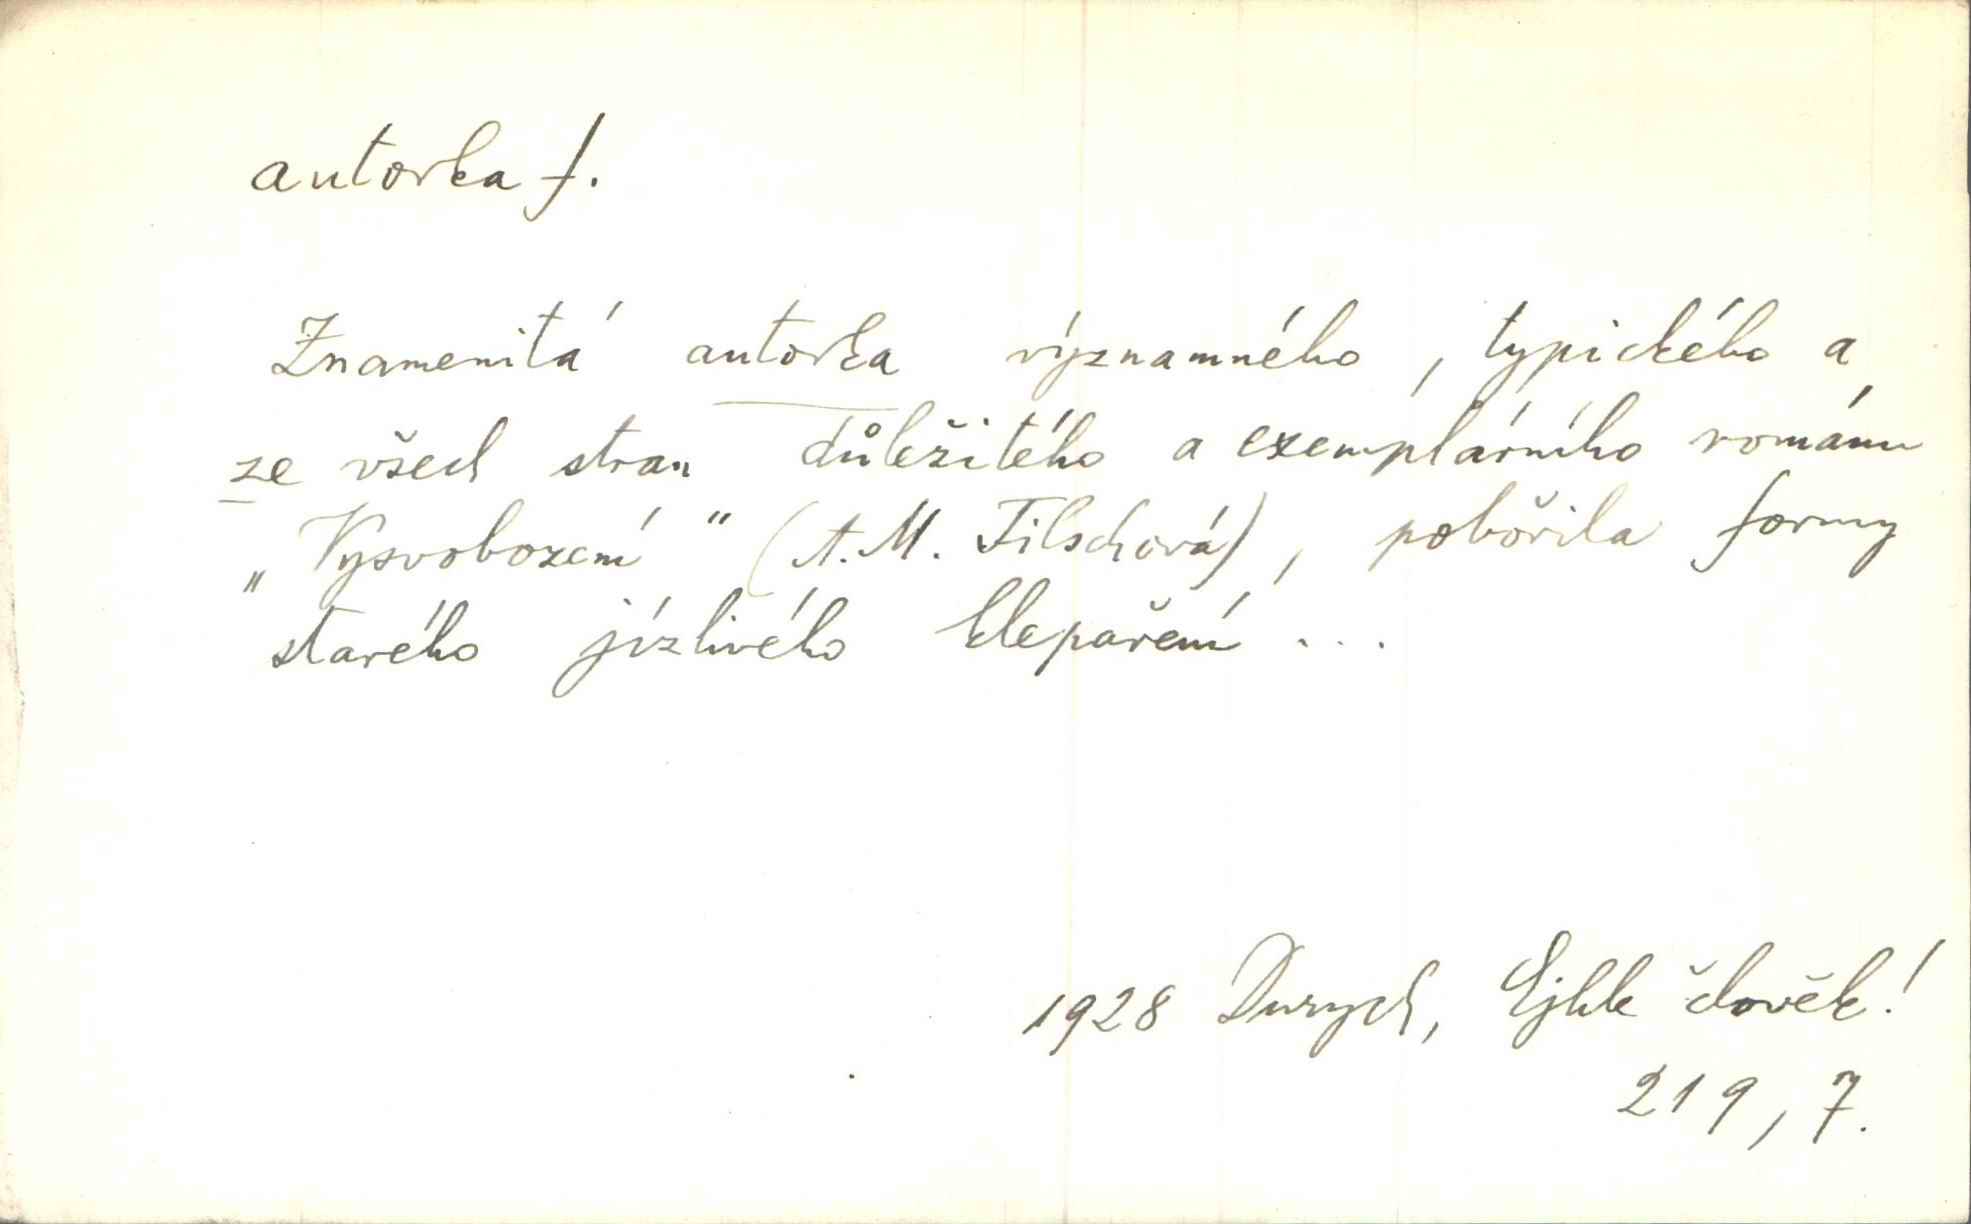 autorka f.
Znamenitá autorka významného, typického a
ze všech stran důležitého a exemplárního románu
„Vysvobození" (A. M. Tilschová), pobořila formy
starého jízlivého klepaření ...
1928 Durych, Ejhle člověk!
219, 7.